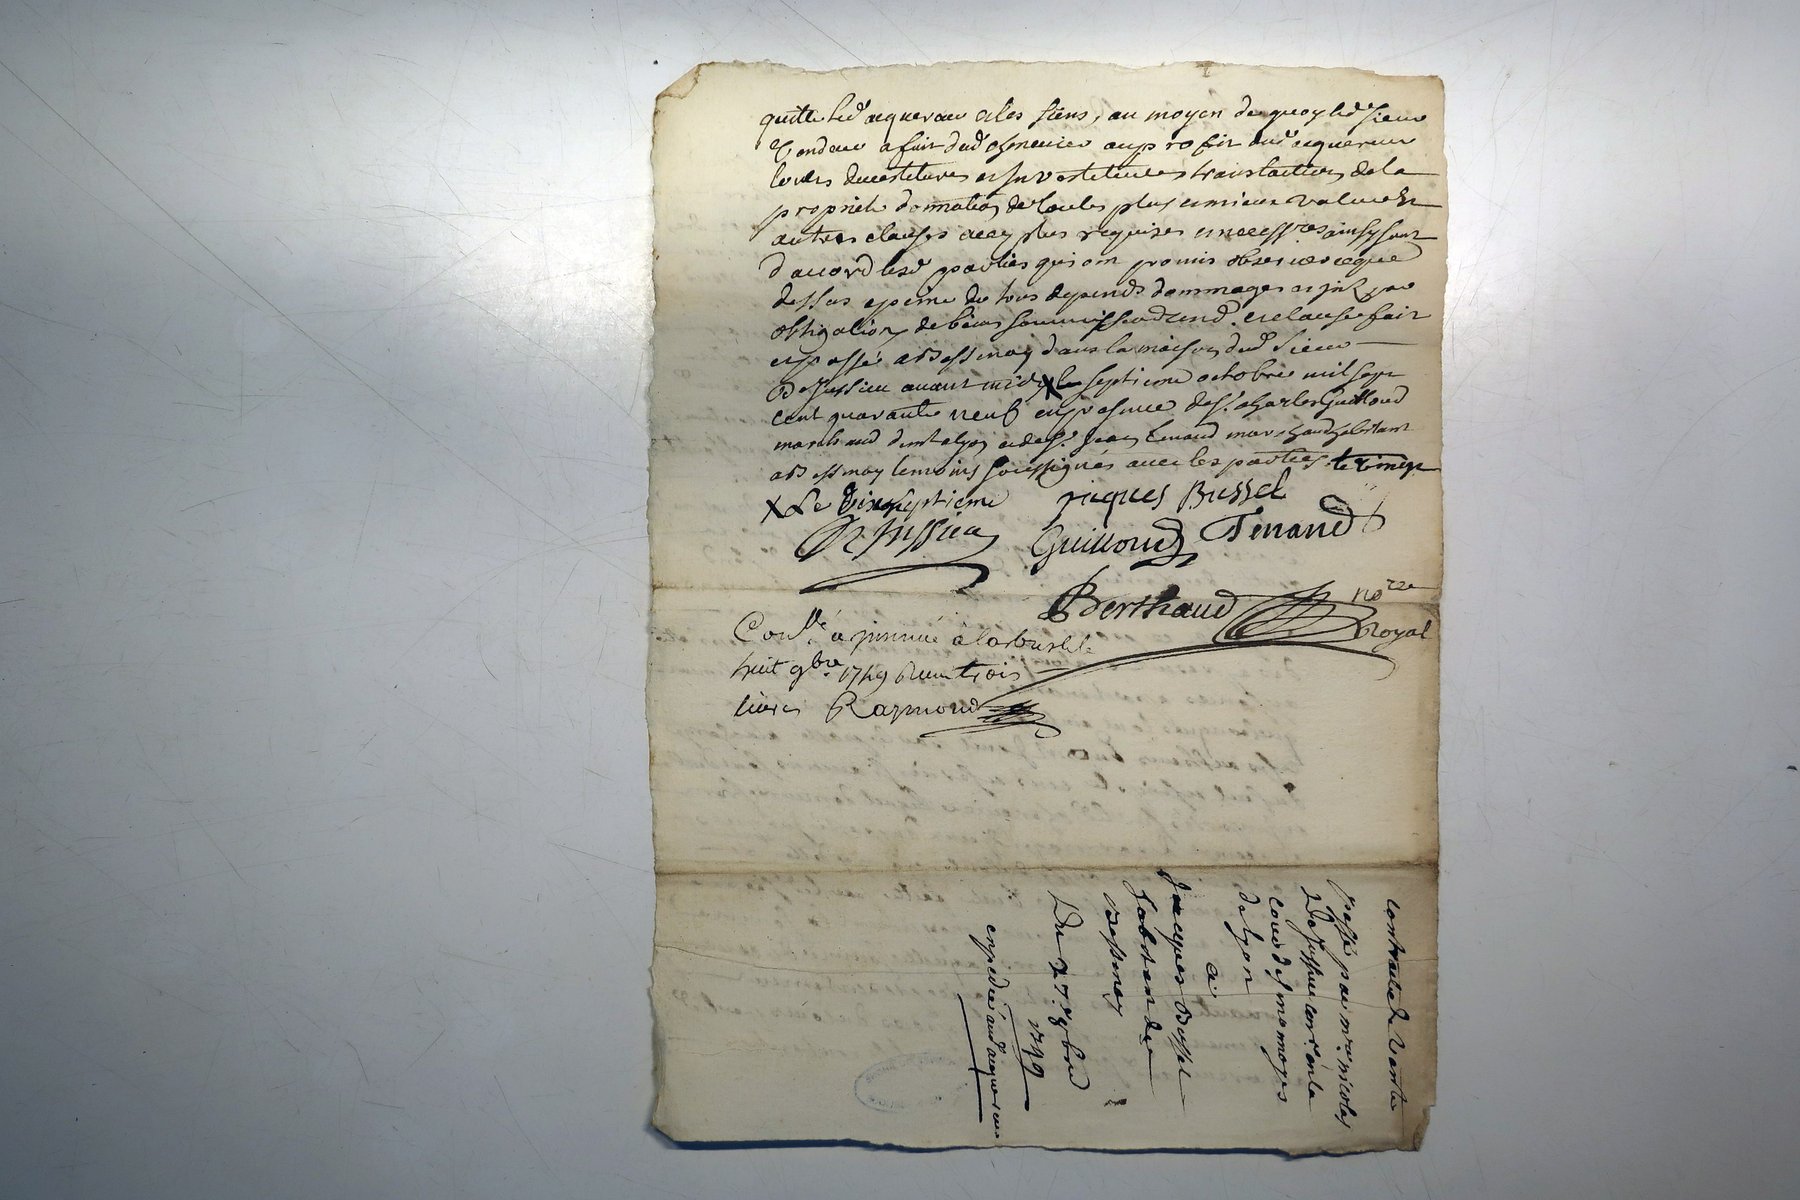 quitte led acquereur et les siens, au moyen de quoy led Sieur
Vendeur a fait dud au profit dud acquereur
devestitures et Investitures translation de la
propriete donnation de toutes plus et mieux values et
autres clauses a ce plus requises et necessres ainsy sont
d'accord lesd parties qui ont promis observer ce que
dessus a peine de tous depends dommages et
obligation de biens et clauses fait
et passé a Bessenay dans la maison dud Sieur
DeJussieu avant midy X le septieme octobre mil sept
cent quarante neuf en presence de sr. Charles Guilloud
marchand et de sr. Jean Tenand marchand habitant
a Bessenay temoins soussignés avec les parties
X Le Dixseptieme jaques Bussel
De Jussieu Guilloud Tenand
Berthaud nore
Royal
Conllé a
huit 9bre 1749 Recu trois
livres Raymond
contract de vente
passé par mre. nicolas
DeJussieu conser en la
cour des monnoyes
de Lyon
a
Jacques Bussel
habitant de
Bessenay
Du 17e. 8bre
1749
expediée aud acquereur